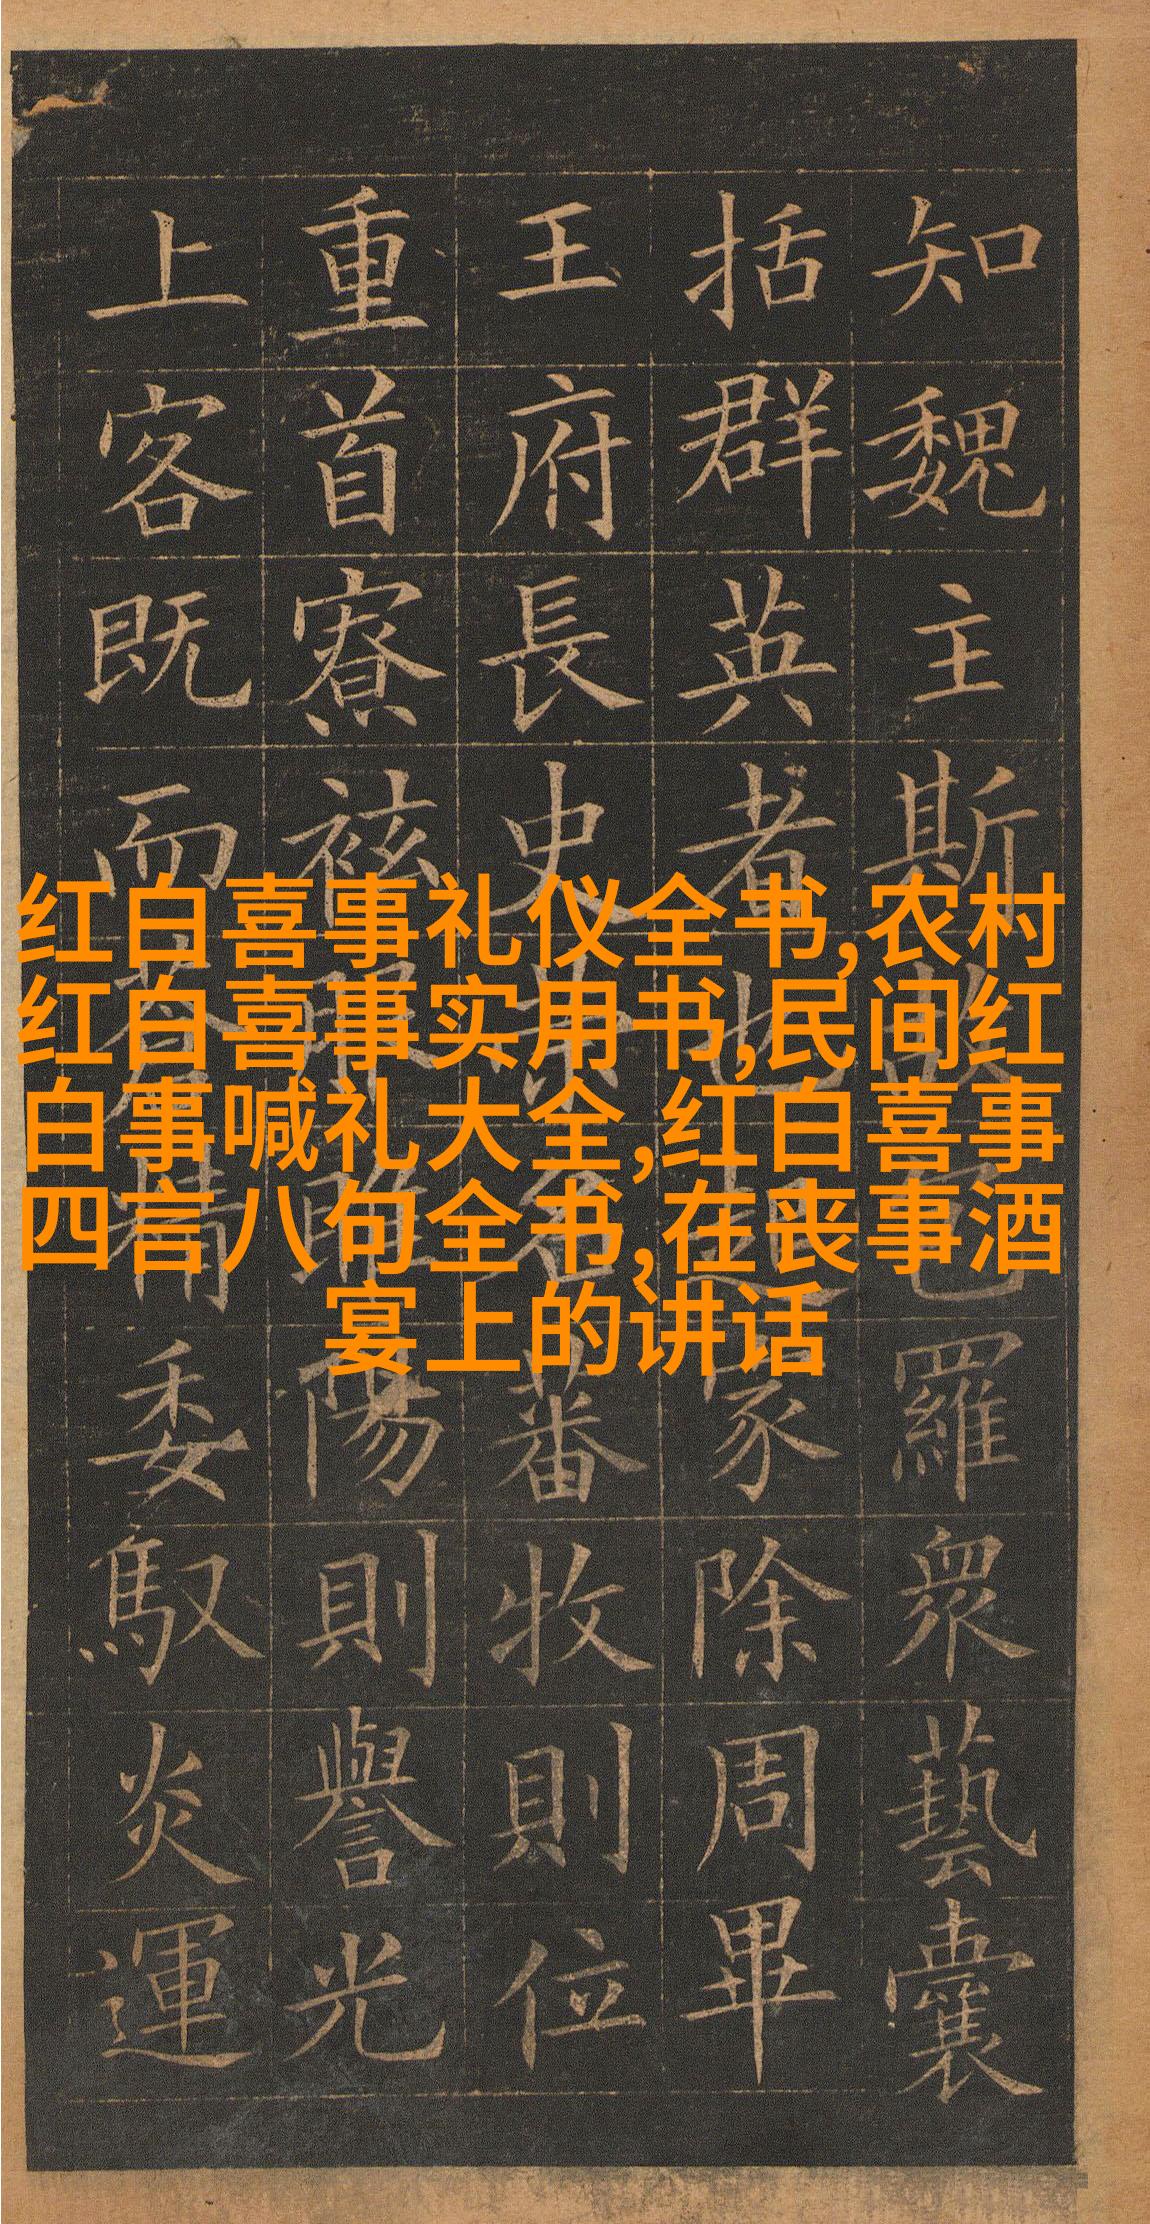 红白喜事礼仪全书,农村
红白喜事实用书,民间红
白事喊礼大全,红白喜事
四言八句全书,在丧事酒
宴上的讲话
知魏主斯故包羅衆藝囊
括群英者也起家除周畢
王府長史蕃牧則位
重首寮陽則譽光
上客既而蒼精委馭炎運